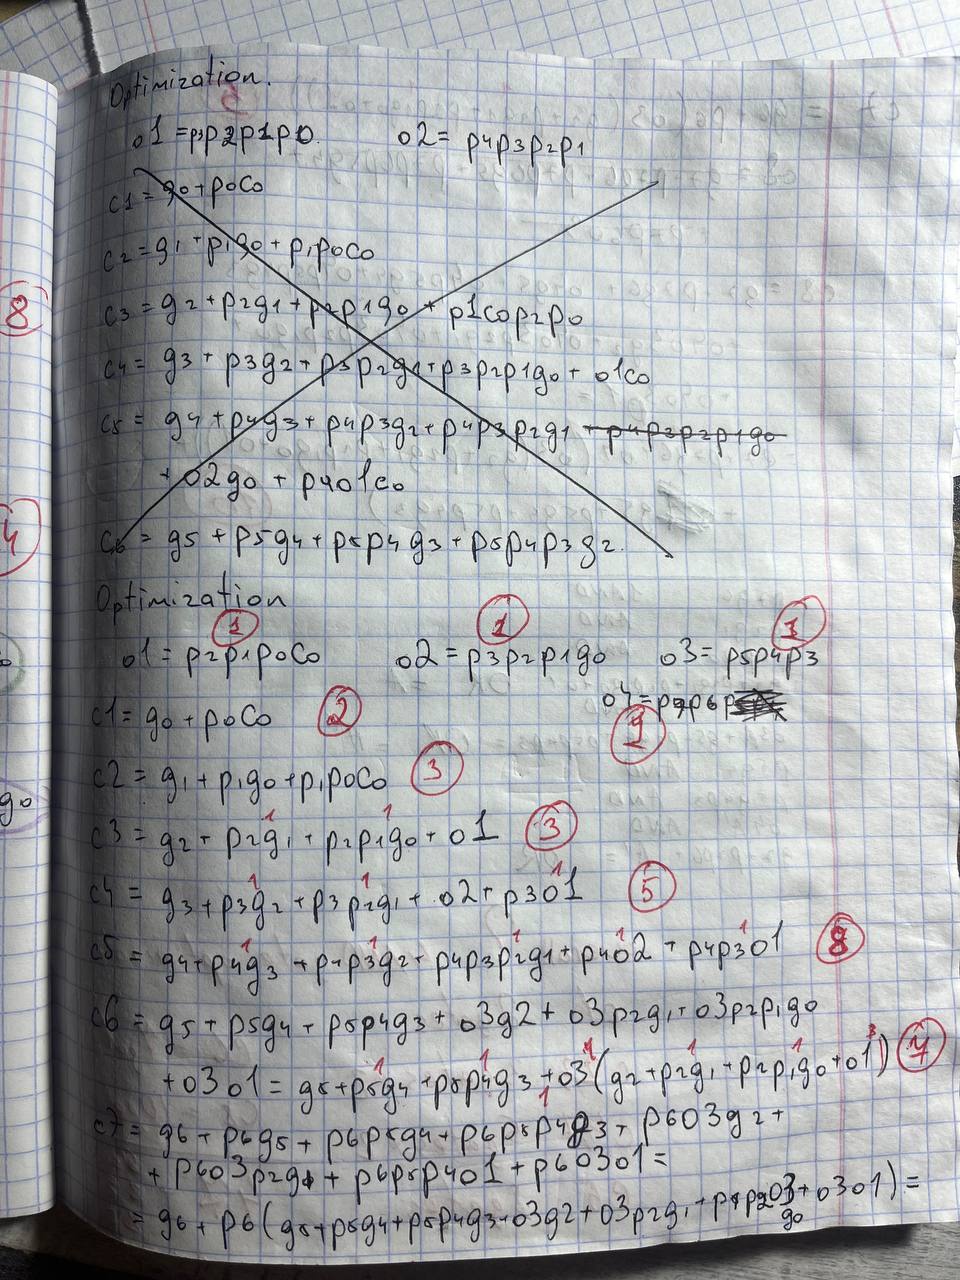 Optimization.
o1 = p3p2p1p0 o2 = p4p3p2p1
c1 = g0 + p0c0
c2 = g1 + p1g0 + p1p0c0
c3 = g2 + p2g1 + p2p1g0 + p1c0p2p0
c4 = g3 + p3g2 + p3p2g1 + p3p2p1g0 + o1c0
c5 = g4 + p4g3 + p4p3g2 + p4p3p2g1 + p4p3p2p1g0
+ o2g0 + p4o1c0
c6 = g5 + p5g4 + p5p4g3 + p5p4p3g2.
Optimization
1 1 1
o1 = p2p1p0c0 o2 = p3p2p1g0 o3 = p5p4p3
c1 = g0 + p0c0 2 o4 = p7p6p
1
c2 = g1 + p1g0 + p1p0c0 3
c3 = g2 + p2g1 + p2p1g0 + o1 3
c4 = g3 + p3g2 + p3p2g1 + o2 + p3o1 5
c5 = g4 + p4g3 + p4p3g2 + p4p3p2g1 + p4o2 + p4p3o1 8
c6 = g5 + p5g4 + p5p4g3 + o3g2 + o3p2g1 + o3p2p1g0
+ o3o1 = g5 + p5g4 + p5p4g3 + o3(g2 + p2g1 + p2p1g0 + o1) 7
c7 = g6 + p6g5 + p6p5g4 + p6p5p4g3 + p6o3g2 +
+ p6o3p2g1 + p6p5p4o1 + p6o3o1 =
= g6 + p6(g5 + p5g4 + p5p4g3 + o3g2 + o3p2g1 + p1p2o3g0 + o3o1) =
8
4
g0